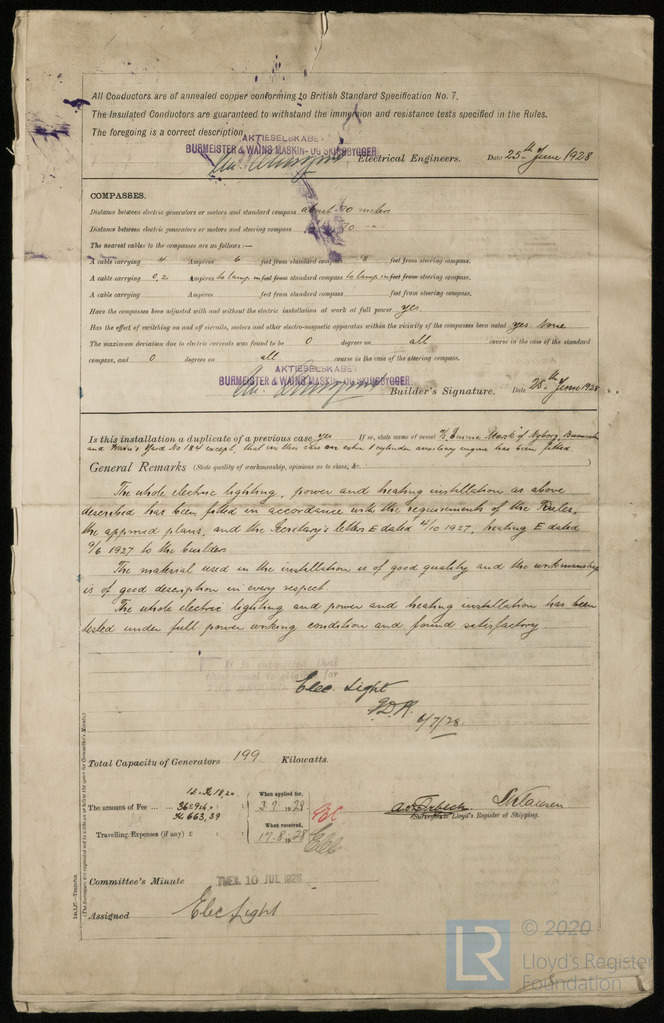 All Conductors are of annealed copper conforming to British Standard Specification No. 7.
The Insulated Conductors are guaranteed to withstand the immersion and resistance tests specified in the Rules.
The foregoing is a correct description.
AKTIESELSKABET
BURMEISTER & WAINS MASKIN- OG SKIBSBYGGERI
Electrical Engineers. Date 25th June 1928
COMPASSES.
Distance between electric generators or motors and standard compass about 30 meters
Distance between electric generators or motors and steering compass 30 -"-
The nearest cables to the compasses are as follows:—
A cable carrying 4 Ampères 6 feet from standard compass 8 feet from steering compass.
A cable carrying 0,2 Ampères to lamp in feet from standard compass to lamp in feet from steering compass.
A cable carrying Ampères feet from standard compass feet from steering compass.
Have the compasses been adjusted with and without the electric installation at work at full power yes
Has the effect of switching on and off circuits, motors and other electro-magnetic apparatus within the vicinity of the compasses been noted yes None
The maximum deviation due to electric currents was found to be 0 degrees on all course in the case of the standard
compass, and 0 degrees on all course in the case of the steering compass.
AKTIESELSKABET
BURMEISTER & WAINS MASKIN- OG SKIBSBYGGERI
Builder's Signature. Date 25th June 1928
Is this installation a duplicate of a previous case yes If so, state name of vessel "Emma Mærsk" of Nyborg, Burmeister
and Wain's Yard No 184 except, that in this case an extra 1 cylinder auxiliary engine has been fitted
General Remarks (State quality of workmanship, opinions as to class, &c.
The whole electric lighting, power and heating installation as above
described has been fitted in accordance with the requirements of the Rules,
the approved plans, and the Secretary's letters E dated 4/10 1927, heating E dated
9/6 1927 to the builders
The material used in the installation is of good quality and the workmanship
is of good description in every respect.
The whole electric lighting and power and heating installation has been
tested under full power working condition and found satisfactory
Elec. Light
6/7/28.
Total Capacity of Generators 199 Kilowatts.
The amount of Fee ... When applied for, 3.7.1928
Kr 663,39
When received,
Travelling Expenses (if any) £ : : 17.8.1928
Surveyor to Lloyd's Register of Shipping.
Committee's Minute TUES. 10 JUL 1928
Assigned Elec Light
© 2020
LR
Lloyd's Register
Foundation